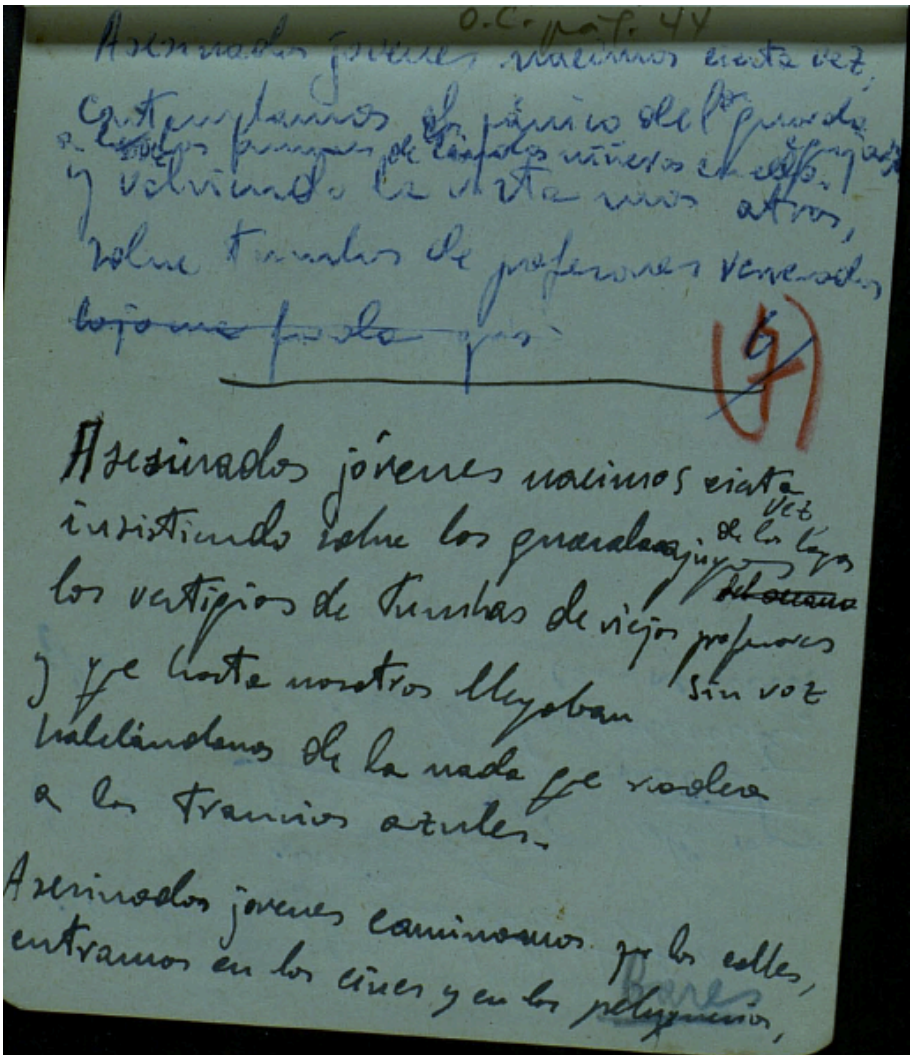 O.C. pág. 44
Asesinados jóvenes nacimos cierta vez,
contemplamos el pánico de los guarda
de niños en
y volviendo la vista unos atras,
sobre tumbas de profesores venerados
(7)
Asesinados jóvenes nacimos cierta vez
insistiendo sobre los guardaagujas de los lagos
del oceano
los vestigios de tumbas de viejos profesores
y qe hasta nosotros llegaban sin voz
hablándonos de la nada qe rodea
a los tranvios azules.
Asesinados jovenes caminamos por las calles,
entramos en los cines y en las peluquerias,
Bares